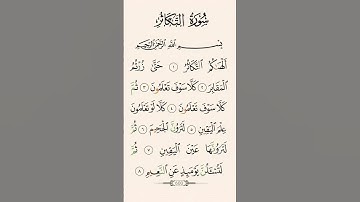 سُورَةُ التَّكَاثُرِ
بِسْمِ اللَّهِ الرَّحْمَٰنِ الرَّحِيمِ
أَلْهَاكُمُ التَّكَاثُرُ ١ حَتَّىٰ زُرْتُمُ
الْمَقَابِرَ ٢ كَلَّا سَوْفَ تَعْلَمُونَ ٣ ثُمَّ
كَلَّا سَوْفَ تَعْلَمُونَ ٤ كَلَّا لَوْ تَعْلَمُونَ
عِلْمَ الْيَقِينِ ٥ لَتَرَوُنَّ الْجَحِيمَ ٦ ثُمَّ
لَتَرَوُنَّهَا عَيْنَ الْيَقِينِ ٧ ثُمَّ
لَتُسْأَلُنَّ يَوْمَئِذٍ عَنِ النَّعِيمِ ٨